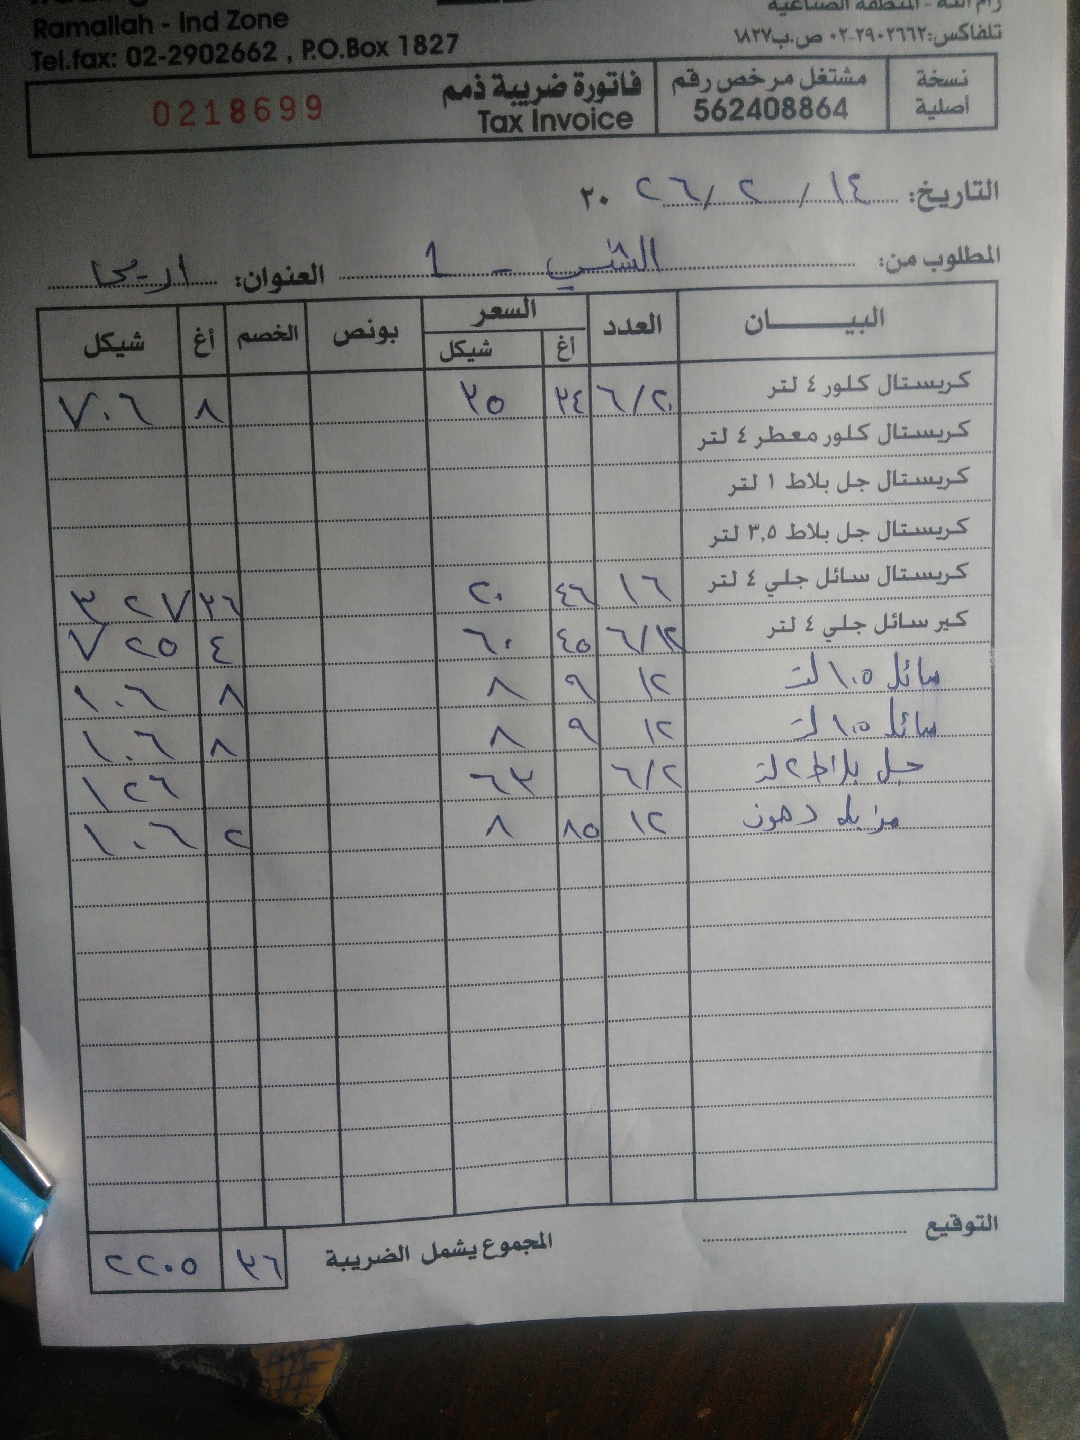 Ramallah - Ind Zone
رام الله - المنطقة الصناعية
Tel.fax: 02-2902662 , P.O.Box 1827
تلفاكس: ٢٩٠٢٦٦٢-٠٢ ص.ب ١٨٢٧
نسخة أصلية
مشتغل مرخص رقم
562408864
فاتورة ضريبة ذمم
Tax Invoice
0218699
التاريخ: ١٤ / ٢ / ٢٠٢٦
المطلوب من: الشني - 1 العنوان: اريحا
البيــــان العدد السعر بونص الخصم أغ شيكل
أغ شيكل
كريستال كلور ٤ لتر ٦/٢٠ ٣٤ ٣٥ ٨ ٧٠٦
كريستال كلور معطر ٤ لتر
كريستال جل بلاط ١ لتر
كريستال جل بلاط ٣,٥ لتر
كريستال سائل جلي ٤ لتر ١٦ ٤٦ ٢٠ ٣٦ ٣٢٧
كير سائل جلي ٤ لتر ٦/١٢ ٤٥ ٦٠ ٤ ٧٢٥
سائل ١.٥ لتر ١٢ ٩ ٨ ٨ ١٠٦
سائل ١.٥ لتر ١٢ ٩ ٨ ٨ ١٠٦
جل بلاط ٢ لتر ٦/٢ ٦٣ ١٢٦
مزيل دهون ١٢ ٨٥ ٨ ٢ ١٠٦
التوقيع
المجموع يشمل الضريبة ٣٦ ٢٢٠٥